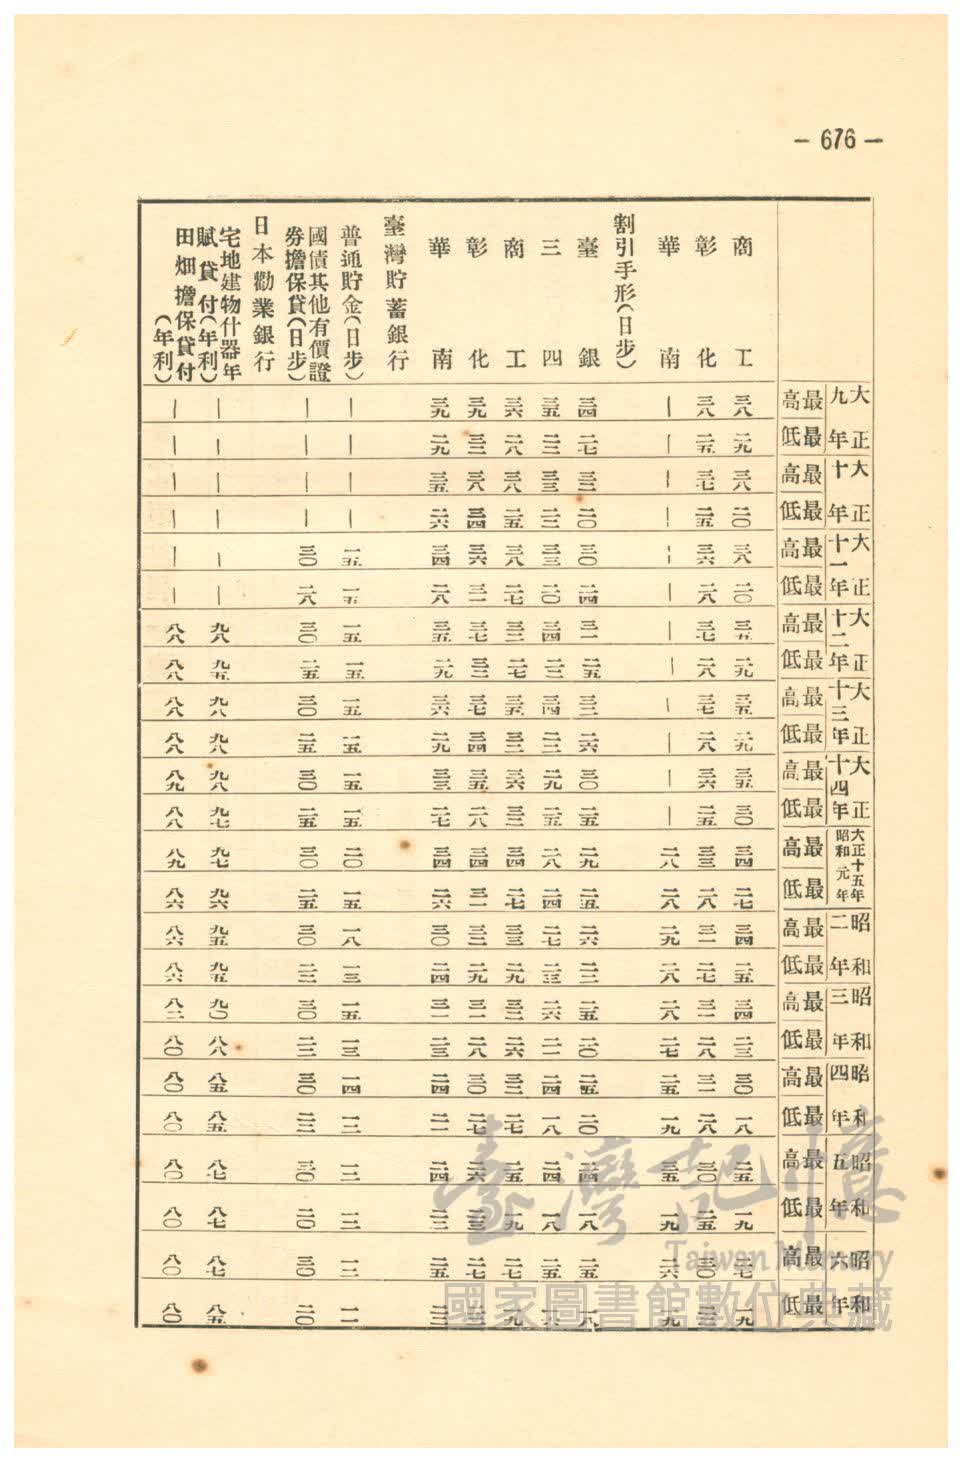 — 676 —
商工
彰化
華南
割引手形(日步)
臺銀
三四
商工
彰化
華南
臺灣貯蓄銀行
普通貯金(日步)
國債其他有價證
券擔保貸(日步)
日本勸業銀行
宅地建物什器年
賦貸付(年利)
田畑擔保貸付
(年利)
大正九年 最高 三八 三八 — 三四 三五 三六 三九 三九 — — — —
最低 二九 二五 — 二七 二三 二八 三三 二九 — — — —
大正十年 最高 三八 三七 — 三三 三三 三八 三八 三五 — — — —
最低 二〇 二五 — 二〇 二三 二五 三四 二六 — — — —
大正十一年 最高 三八 三六 — 三〇 三三 三八 三六 三四 一五 三〇 — —
最低 二〇 二八 — 二四 二〇 二七 三一 二八 一五 二八 — —
大正十二年 最高 三五 三七 — 三一 三四 三三 三七 三五 一五 三〇 九八 八八
最低 二九 二八 — 二五 二三 二七 三三 二九 一五 二五 九五 八八
大正十三年 最高 三五 三七 — 三三 三四 三五 三七 三六 一五 三〇 九八 八八
最低 二九 二八 — 二六 二三 三二 三四 二九 一五 二五 九八 八八
大正十四年 最高 三五 三六 — 三〇 二九 三六 三五 三三 一五 三〇 九八 八九
最低 三〇 二五 — 二五 二五 三二 二八 二七 一五 二五 九七 八八
大正十五年昭和元年 最高 三四 三三 二八 二九 二八 三四 三四 三四 二〇 三〇 九七 八九
最低 二七 二八 二八 二五 二四 二七 三一 二六 一五 二五 九六 八六
昭和二年 最高 三四 三一 二九 二六 二七 三三 三二 三〇 一八 三〇 九五 八六
最低 二五 二七 二八 二二 二三 二九 二九 二四 一三 二二 九五 八六
昭和三年 最高 三四 三一 二八 二五 二六 三二 三一 三一 一五 三〇 九〇 八二
最低 二三 二八 二七 二〇 二一 二六 二八 二三 一三 二二 八八 八〇
昭和四年 最高 三〇 三一 二五 二五 二四 三二 三〇 二四 一四 三〇 八五 八〇
最低 一八 二八 一九 二〇 一八 二七 二七 二一 一二 二二 八五 八〇
昭和五年 最高 二五 三〇 三五 二四 二四 二五 二六 二四 一二 三〇 八七 八〇
最低 一九 二五 一九 一八 一八 一九 二三 二二 一二 二〇 八七 八〇
昭和六年 最高 二七 三〇 二六 二五 二五 二七 二七 二五 一二 三〇 八七 八〇
最低 一九 二三 一九 一八 一六 一九 二三 二二 一一 二〇 八五 八〇
臺灣記憶
Taiwan Memory
國家圖書館數位典藏